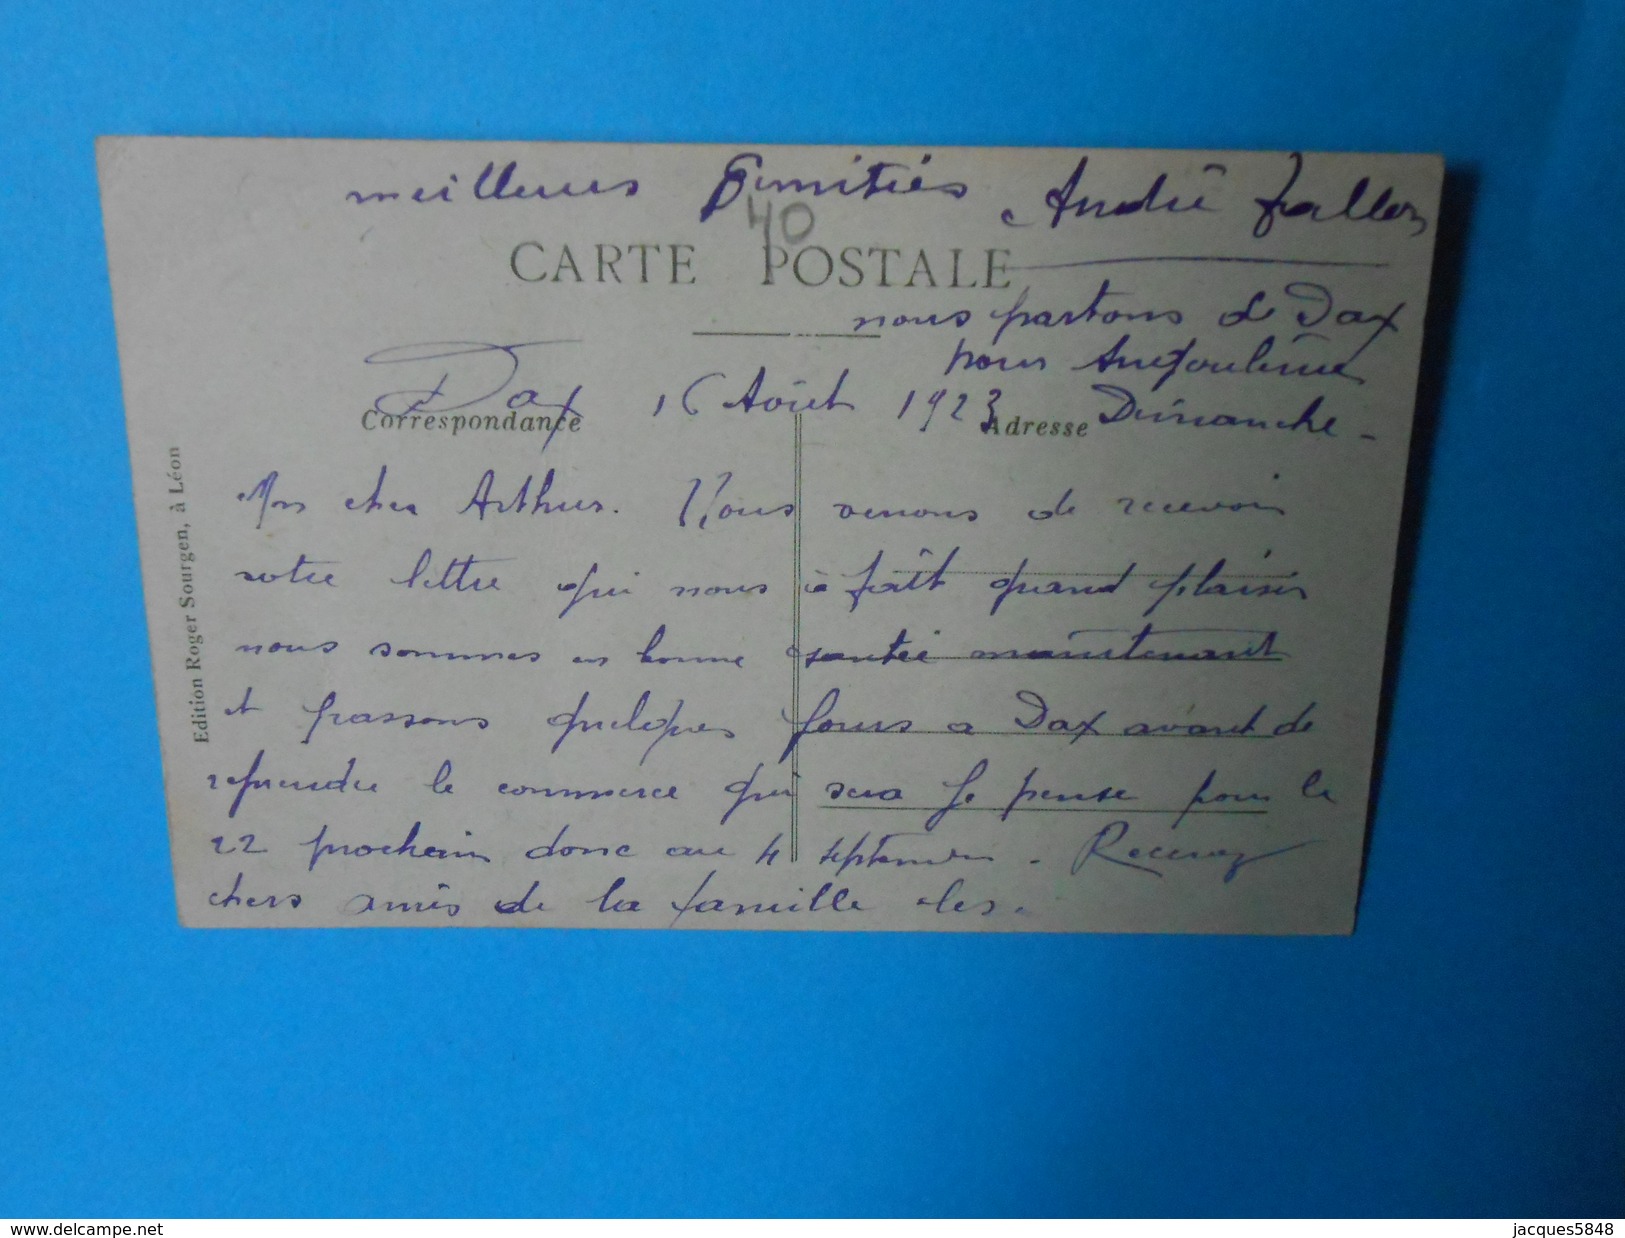 meilleures amitiés André
40
CARTE POSTALE
nous partons de Dax
pour Angoulême
Dimanche -
Dax 16 Août 1923
Correspondance
Adresse
Mon cher Arthur. Nous venons de recevoir
votre lettre qui nous à fait grand plaisir
nous sommes en bonne santée maintenant
et passons quelques jours a Dax avant de
reprendre le commerce qui sera je pense pour le
22 prochain donc au 4 septembre. Recevez
chers amis de la famille les.
Edition Roger Sourgen, à Léon
www.delcampe.net
jacques5848